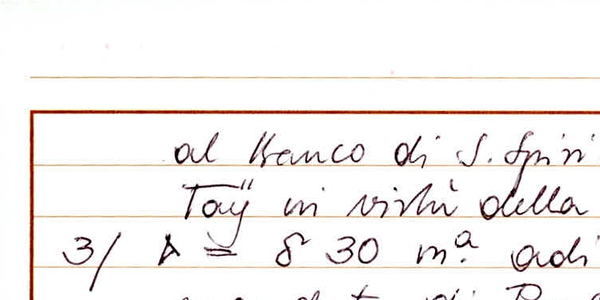 al Banco di S. Spiri
Taÿ in virtù della
3/ A = 8 30 m.ª adi